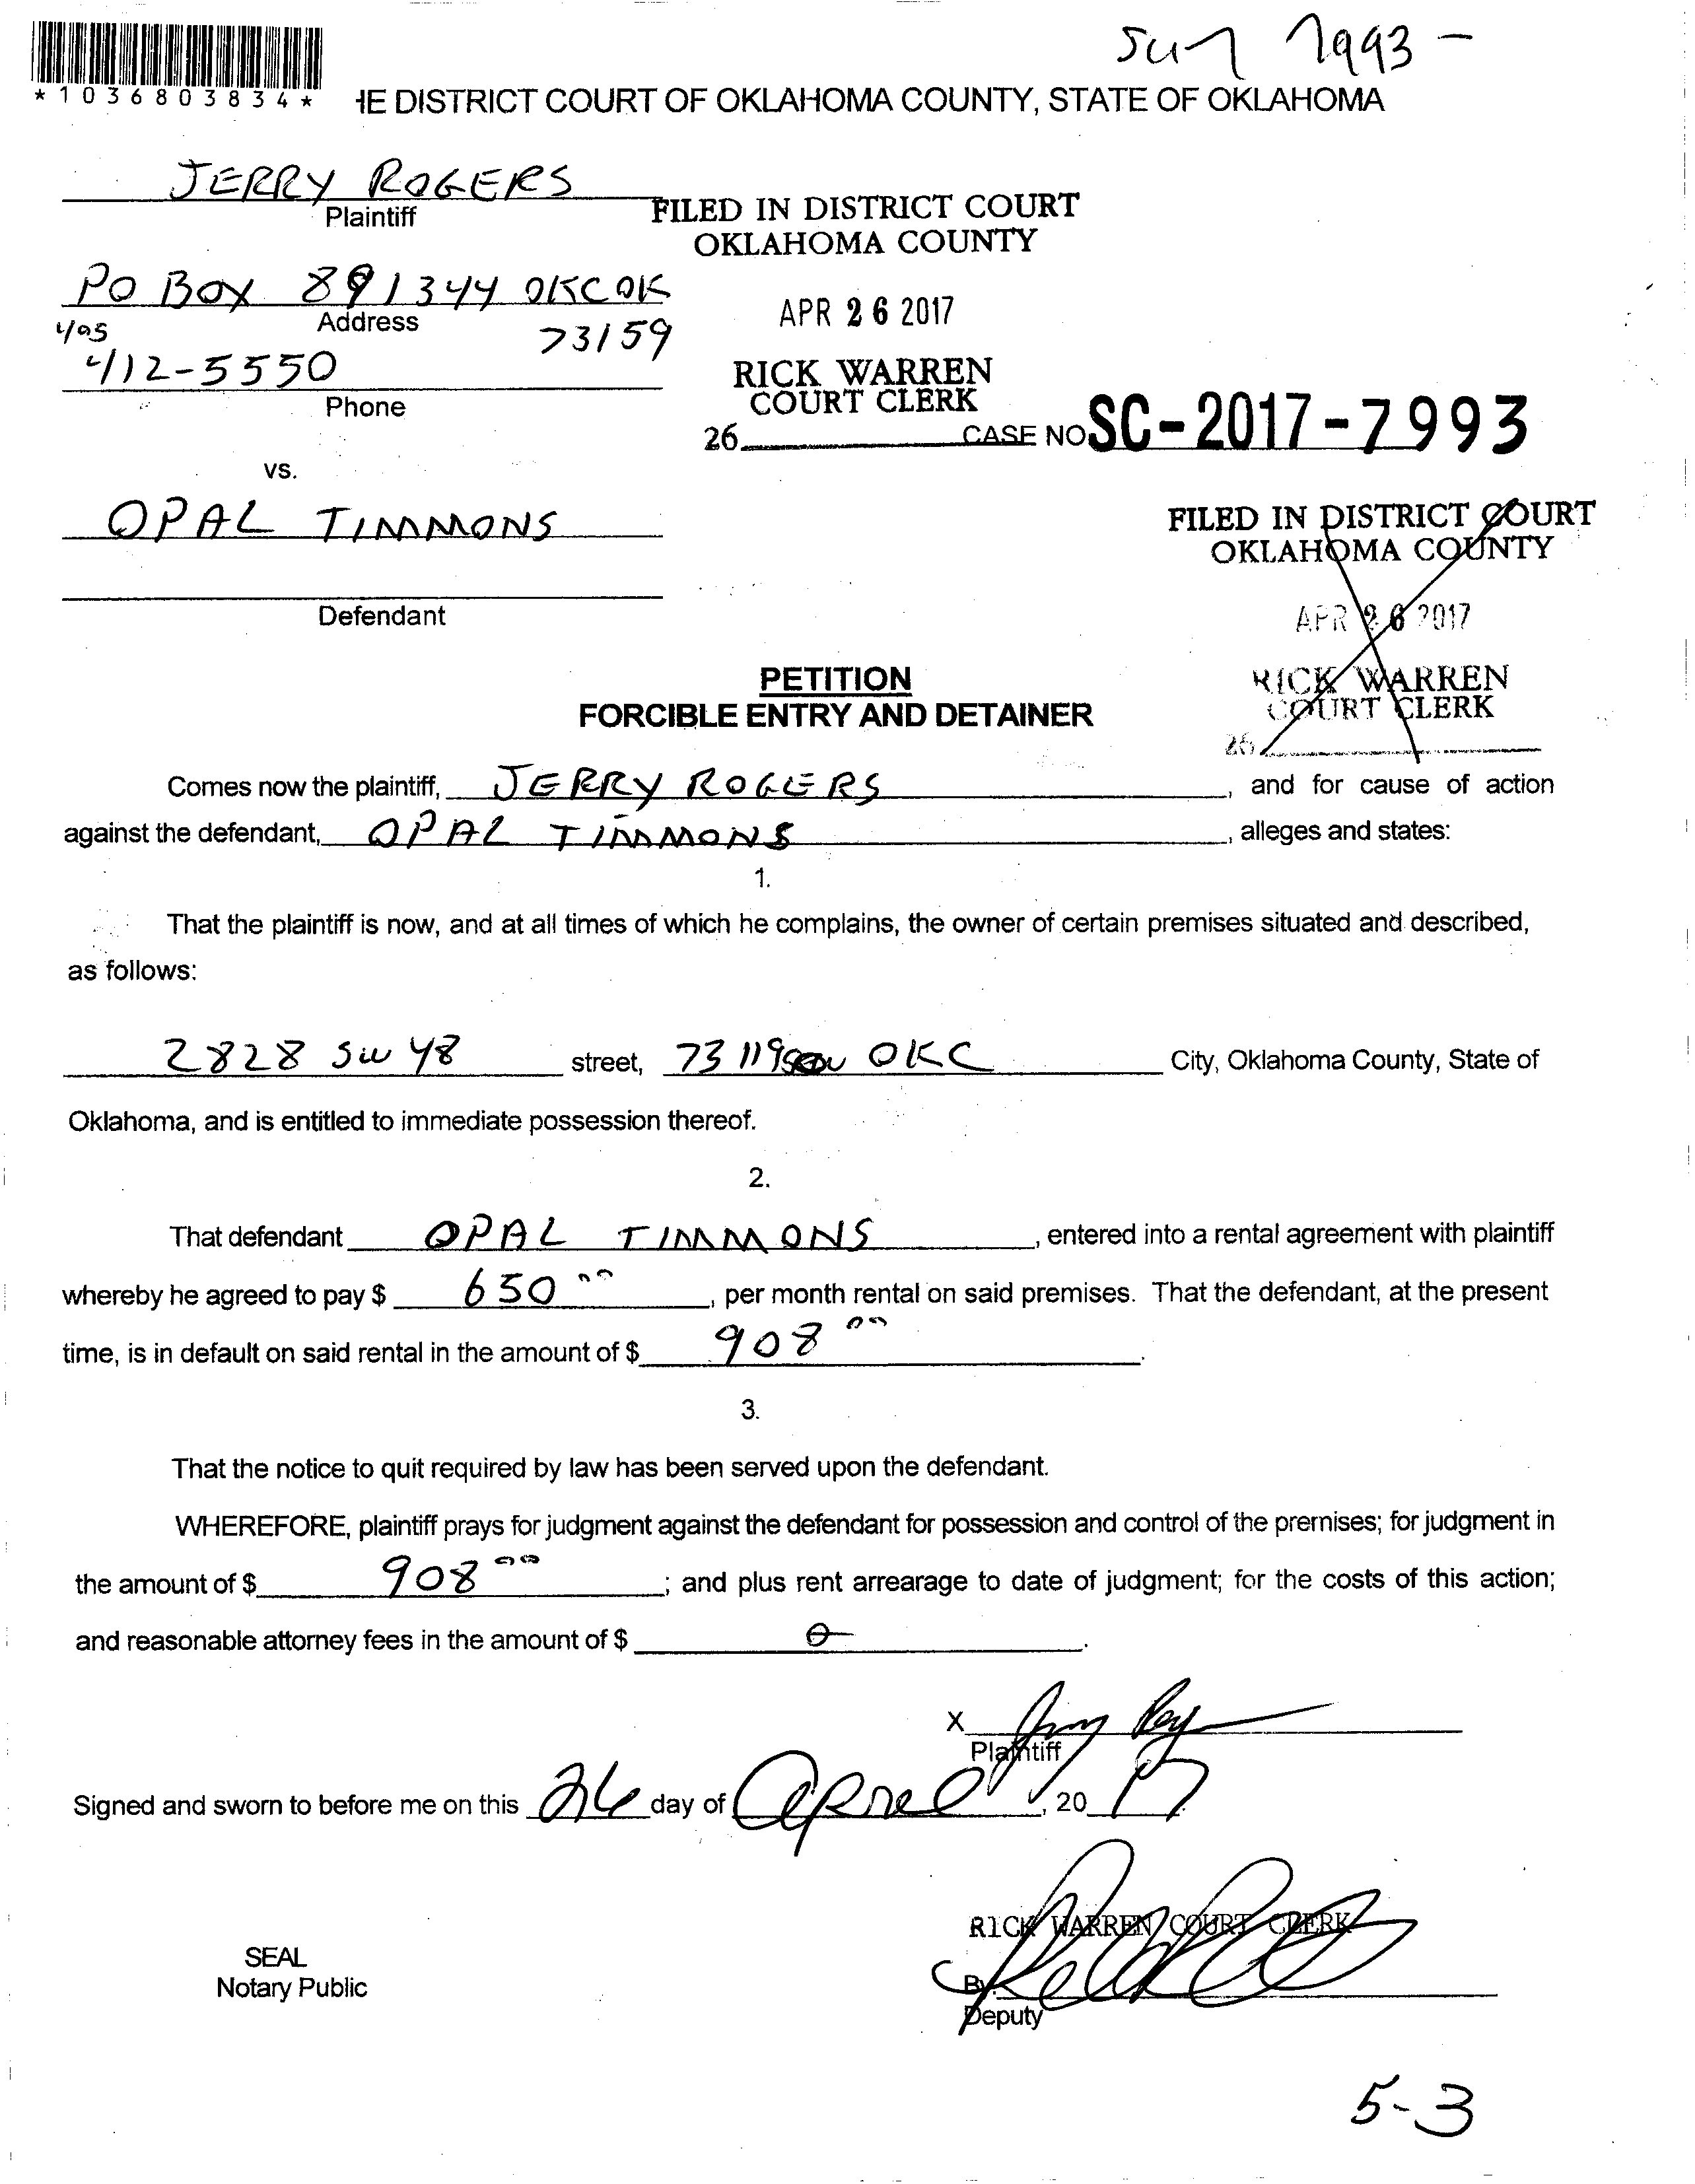 7993 -
*1036803834*
HE DISTRICT COURT OF OKLAHOMA COUNTY, STATE OF OKLAHOMA
JERRY ROGERS
Plaintiff
FILED IN DISTRICT COURT
OKLAHOMA COUNTY
PO BOX 891344 OKC OK
Address
73159
APR 26 2017
405
412-5550
Phone
RICK WARREN
COURT CLERK
26
CASE NO SC-2017-7993
vs.
OPAL TIMMONS
Defendant
FILED IN DISTRICT COURT
OKLAHOMA COUNTY
APR 26 2017
RICK WARREN
COURT CLERK
26
PETITION
FORCIBLE ENTRY AND DETAINER
Comes now the plaintiff, JERRY ROGERS, and for cause of action
against the defendant, OPAL TIMMONS, alleges and states:
1.
That the plaintiff is now, and at all times of which he complains, the owner of certain premises situated and described,
as follows:
2828 SW 48 street, 73119 OKC City, Oklahoma County, State of
Oklahoma, and is entitled to immediate possession thereof.
2.
That defendant OPAL TIMMONS, entered into a rental agreement with plaintiff
whereby he agreed to pay $ 650 00, per month rental on said premises. That the defendant, at the present
time, is in default on said rental in the amount of $ 908 00.
3.
That the notice to quit required by law has been served upon the defendant.
WHEREFORE, plaintiff prays for judgment against the defendant for possession and control of the premises; for judgment in
the amount of $ 908 00; and plus rent arrearage to date of judgment; for the costs of this action;
and reasonable attorney fees in the amount of $ 0.
X
Plaintiff
Signed and sworn to before me on this 26 day of April, 20 17
RICK WARREN COURT CLERK
SEAL
Notary Public
By
Deputy
5-3